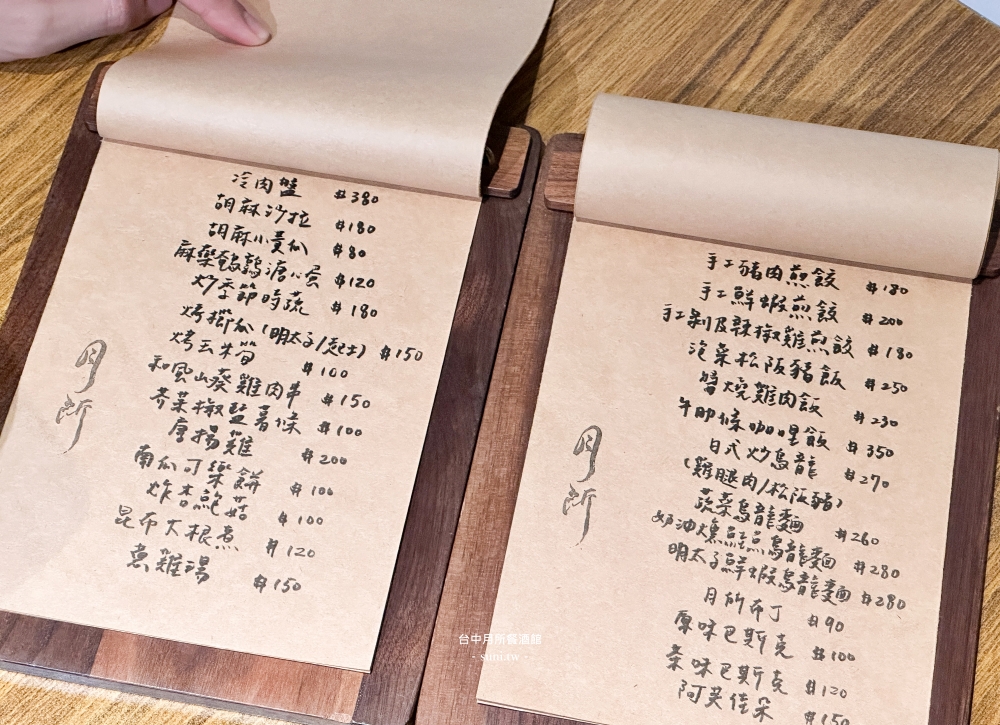 冷肉盤 $380
胡麻沙拉 $180
胡麻小黃瓜 $80
麻藥鵪鶉溏心蛋 $120
炒季節時蔬 $180
烤櫛瓜(明太子/起士) $150
烤玉米筍 $100
和風山葵雞肉串 $150
芥菜椒鹽薯條 $100
唐揚雞 $200
南瓜可樂餅 $100
炸杏鮑菇 $100
昆布大根煮 $120
雞湯 $150
月所
手工豬肉煎餃 $180
手工鮮蝦煎餃 $200
手工剝皮辣椒雞煎餃 $180
泡菜松阪豬飯 $250
醬燒雞肉飯 $230
牛肋條咖哩飯 $350
日式炒烏龍 $270
(雞腿肉/松阪豬)
蔬菜烏龍麵 $260
奶油燻鮭魚烏龍麵 $280
明太子鮮蝦烏龍麵 $280
月所布丁 $90
原味巴斯克 $100
茶味巴斯克 $120
阿芙佳朵 $150
月所
台中月所餐酒館
- suni.tw -